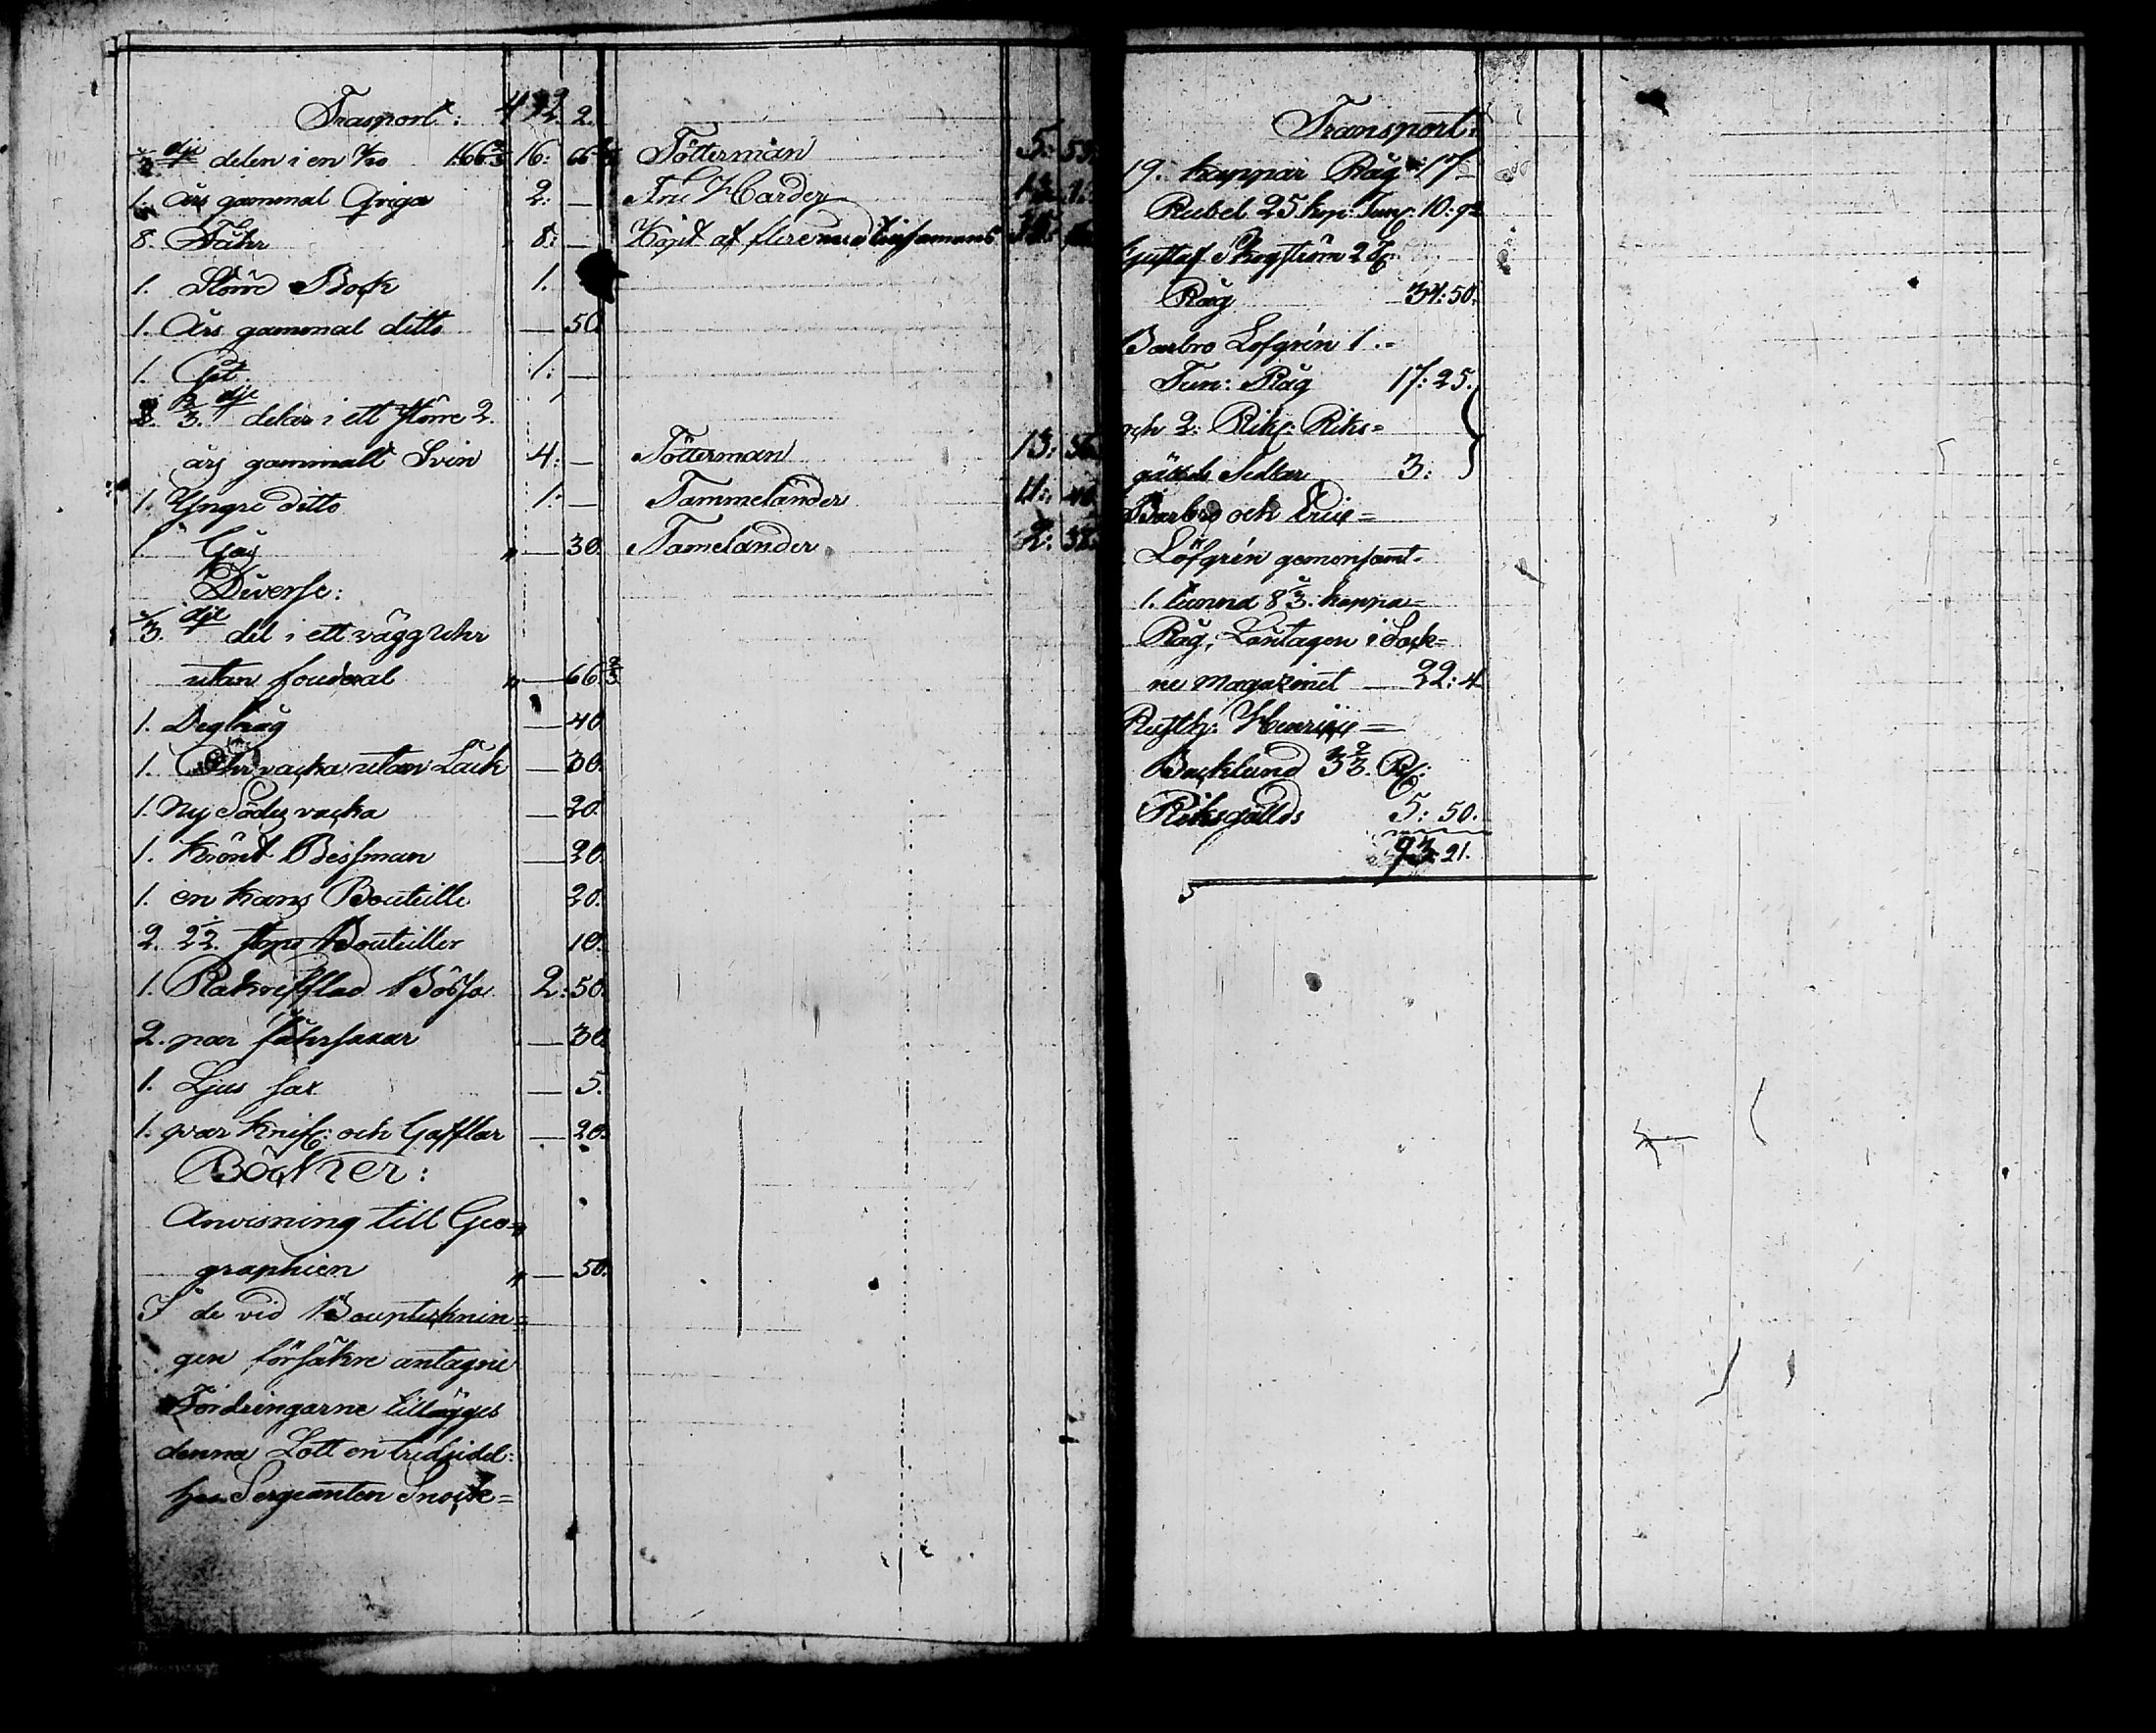 Trasport: 472. 2.
2/3 dje delen i en Ko 1.66 2/3 16: 66 2/3 Tötterman 5: 55.
1. Års gammal Qviga 2: — Harder
8. Fåhr 8: — Köpt af flere
1. Större Bock 1.
1. Års gammal ditto — 50.
1. Get 1: —
2/3. dje delar i ett större 2.
års gammalt Svin 4: — Tötterman 13: 56.
1. Yngre ditto 1: — Tammelander 11: 40.
1. Gås — 30. Tamelander 2: 32.
Diverse:
2/3. dje del i ett vägg Uhr
utan fouderal — 66 2/3
1. Degtråg — 40.
1. vacka utan Låck — 30.
1. Ny Södes vacka — 20.
1. Krönt Bessman — 20.
1. en Kans Bouteille 20.
2. 2 1/2. stops Bouteiller 10.
1. Rakrefflad Bössa 2: 50.
2. par fåhrsaxar — 30.
1. Ljus sax — 5.
1. par Knif: och Gafflar — 20.
Böcker:
Anvisning till Geo=
graphien — 50.
I de vid Bouptecknin=
gen försäkre antagne
Fordringarne tillägges
denna Lott en tredjedel:
hos Sergeanten Snoile=
Transport:
19. kappar Råg 17
Rubel 25 kop: Tun: 10: 92
Gustaf Skogström 2 T:
Råg 34: 50.
Barbro Lofgrén 1.=
Tun: Råg 17: 25.
och 2: Riks: Riks=
gälds Sedlar 3:
Barbro och Eric=
Löfgrén gemensamt.
1. tunna 8 2/3. kappa=
Råg, Låntagen i Sock=
ne Magazinet — 22: 4
Rusth: Henric=
Backlund 3 2/3. R:
Riksgällds 5: 50.
93: 21.